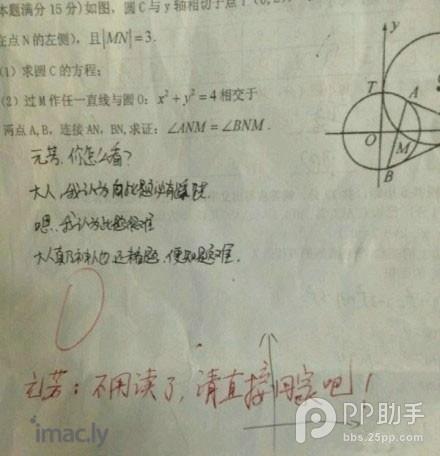 本题满分 15 分)如图，圆 C 与 y 轴相切于点 T (0, 2)
在点 N 的左侧)，且|MN|=3.
(1) 求圆 C 的方程;
(2) 过 M 作任一直线与圆 O: x²+y²=4 相交于
两点 A, B, 连接 AN, BN, 求证: ∠ANM = ∠BNM .
y
T
A
O
M
B
元芳,你怎么看?
大人,我认为此题必有蹊跷
嗯,我认为此题很难
大人真乃神人也,还没看题,便知题难.
0
元芳: 不用读了, 请直接回家吧!
imac.ly
PP助手
bbs.25pp.com